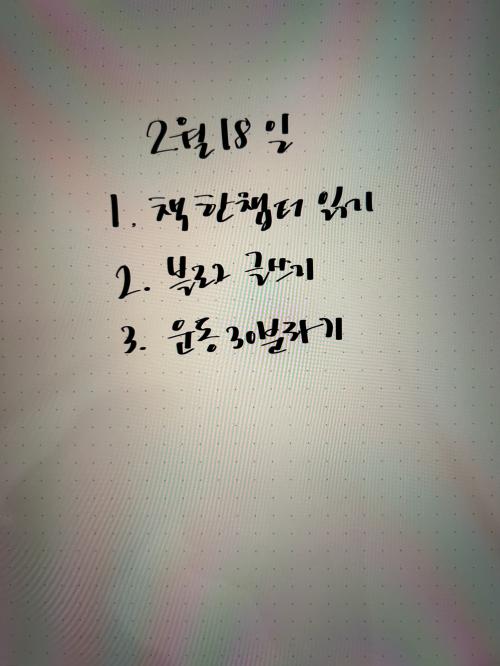 2월 18일
1. 책 한챕터 읽기
2. 블로그 글쓰기
3. 운동 30분하기